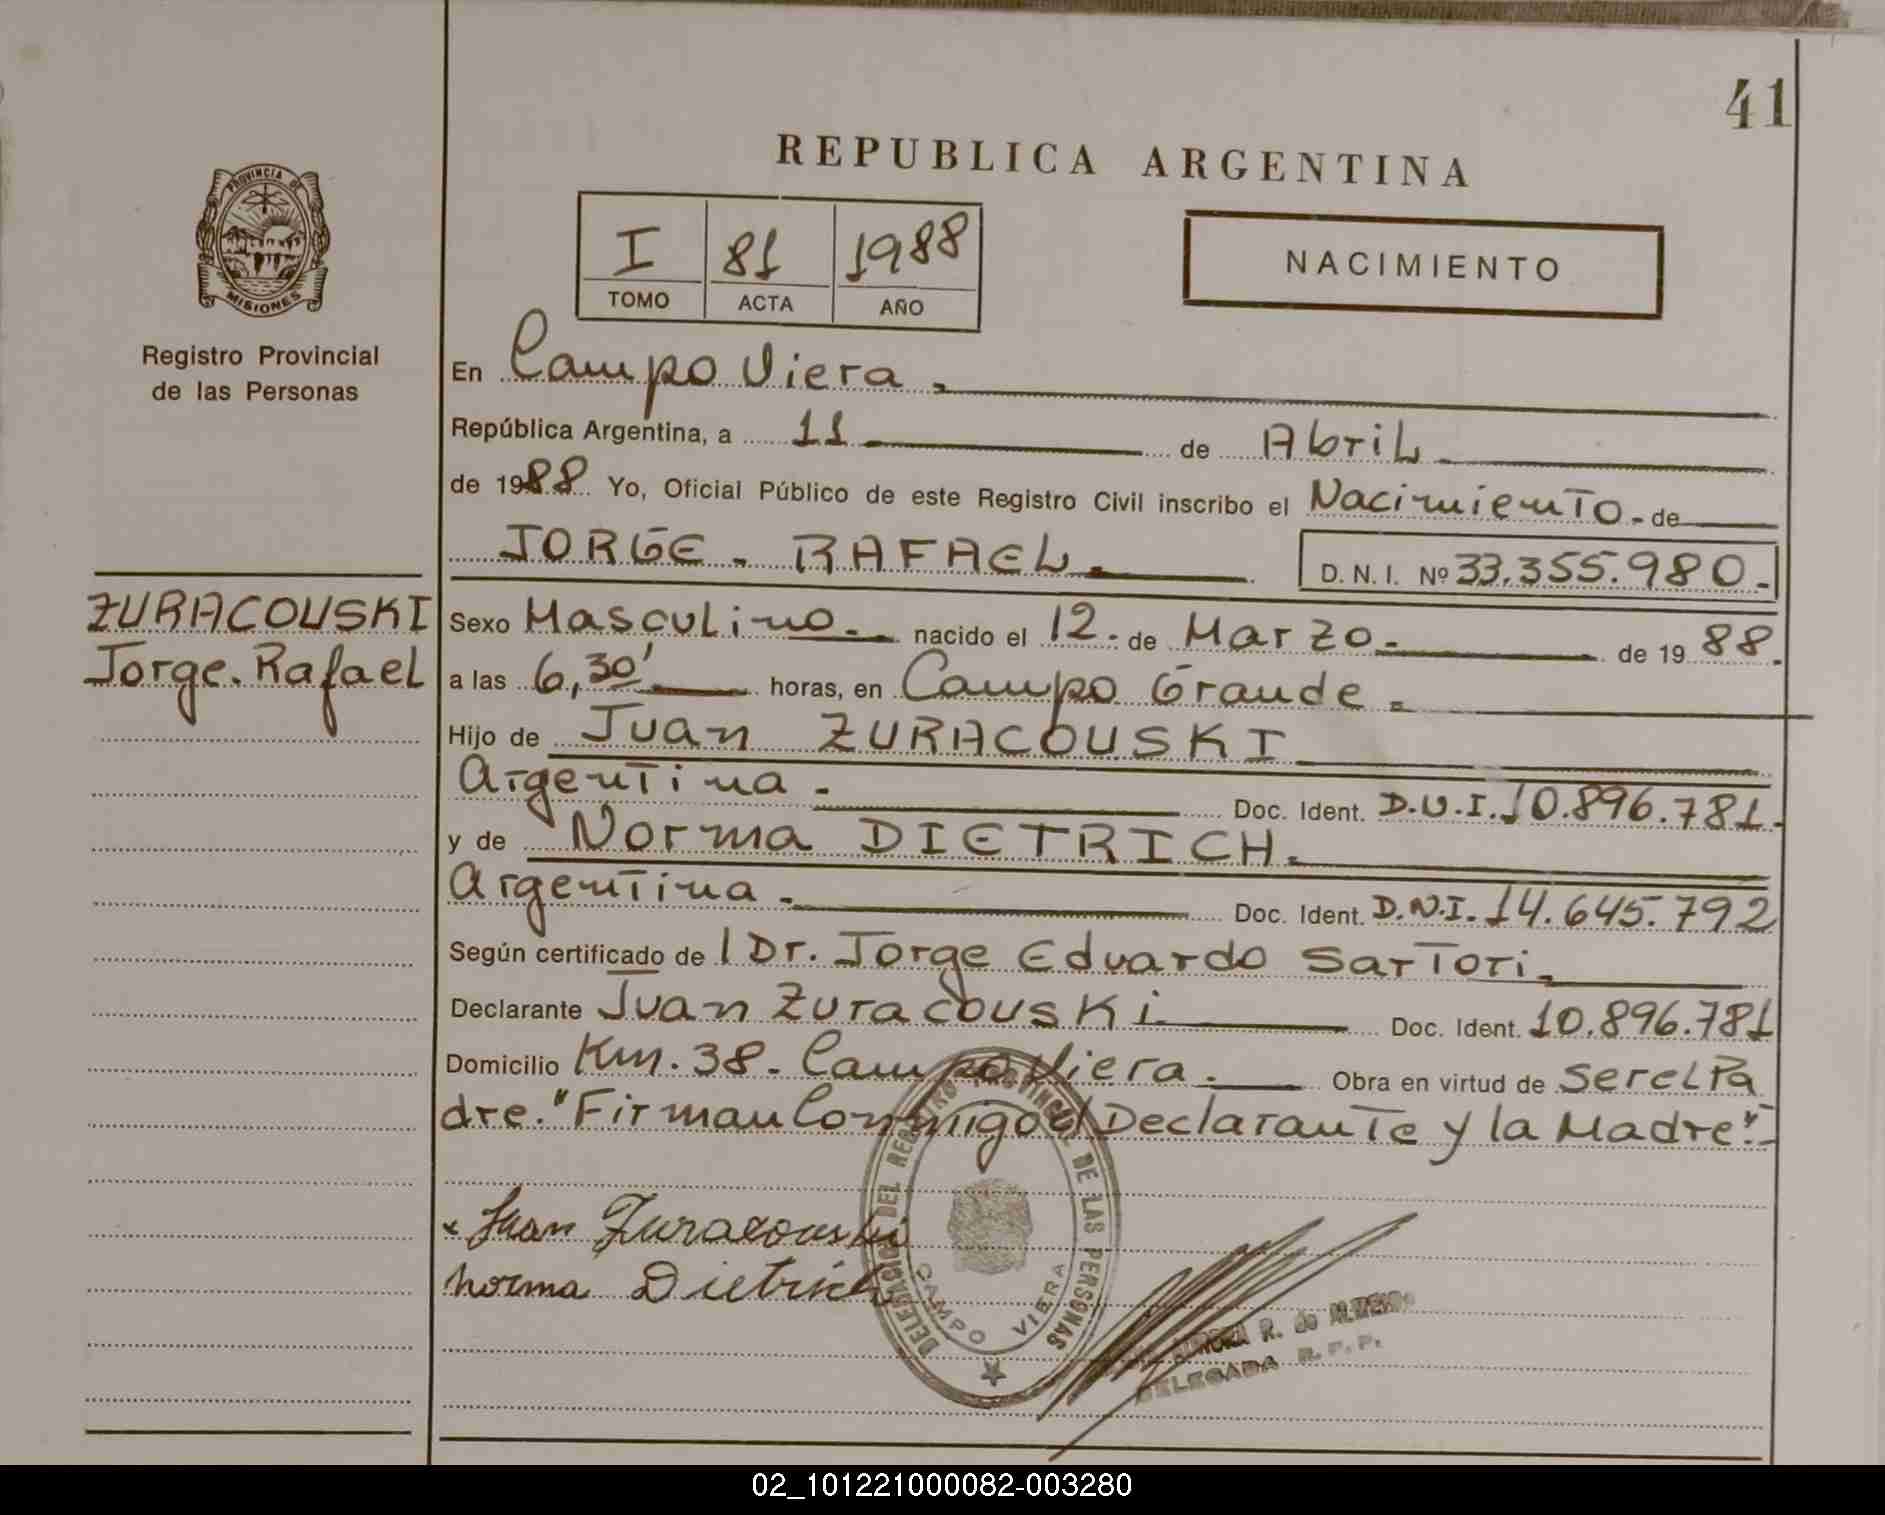 41
REPUBLICA ARGENTINA
PROVINCIA DE
MISIONES
Registro Provincial
de las Personas
I 81 1988
TOMO ACTA AÑO
NACIMIENTO
En Campo Viera.
República Argentina, a 11 de Abril
de 1988 Yo, Oficial Público de este Registro Civil inscribo el Nacimiento. de
JORGE. RAFAEL. D. N. I. Nº 33.355.980.-
ZURACOUSKI
Jorge. Rafael
Sexo Masculino. nacido el 12. de Marzo. de 19 88.
a las 6,30' horas, en Campo Grande.
Hijo de Juan ZURACOUSKI
Argentina. Doc. Ident. D.U.I. 10.896.781.
y de Norma DIETRICH.
Argentina. Doc. Ident. D.N.I. 14.645.792
Según certificado de l Dr. Jorge Eduardo Sartori.
Declarante Juan Zuracouski Doc. Ident. 10.896.781
Domicilio Km. 38. Campo Viera. Obra en virtud de Ser el Pa
dre. "Firman Conmigo el Declarante y la Madre".-
x Juan Zuracouski
Norma Dietrich
DELEGACION DEL REGISTRO PROVINCIAL DE LAS PERSONAS
CAMPO VIERA
R. de
DELEGADA R. P. P.
02_101221000082-003280